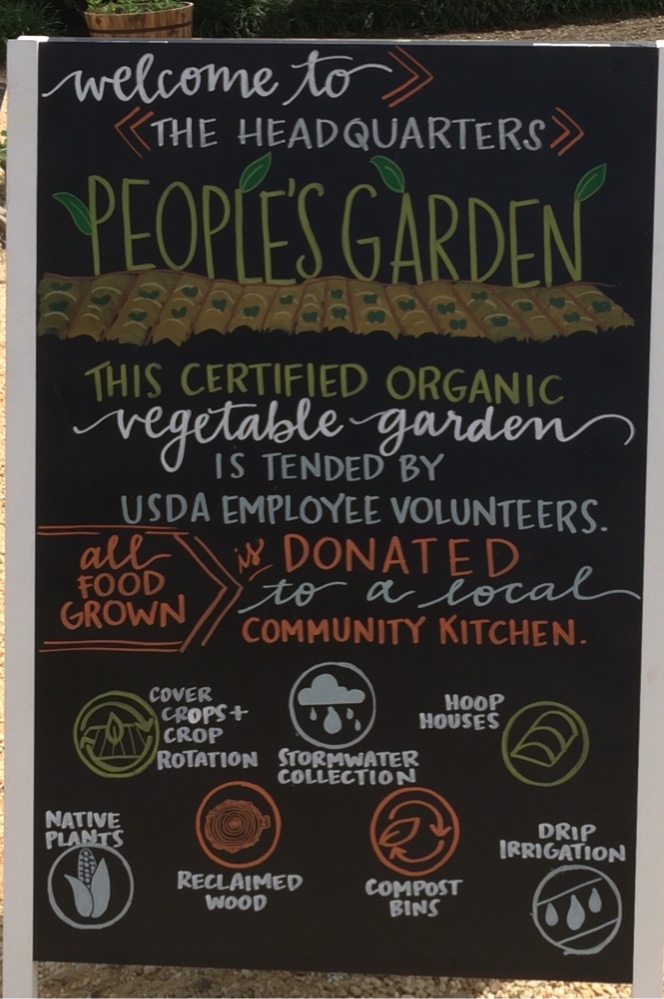 welcome to
THE HEADQUARTERS
PEOPLE'S GARDEN
THIS CERTIFIED ORGANIC
vegetable garden
IS TENDED BY
USDA EMPLOYEE VOLUNTEERS.
all
FOOD
GROWN
is DONATED
to a local
COMMUNITY KITCHEN.
COVER
CROPS+
CROP
ROTATION
STORMWATER
COLLECTION
HOOP
HOUSES
NATIVE
PLANTS
RECLAIMED
WOOD
COMPOST
BINS
DRIP
IRRIGATION